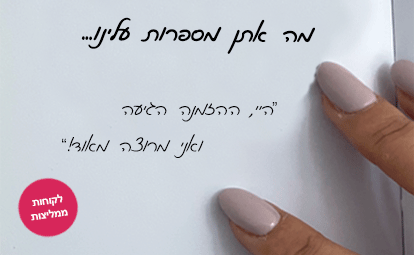 מה אתן מספרות עלינו...
"היי, ההזמנה הגיעה
ואני מרוצה מאוד!"
לקוחות
ממליצות